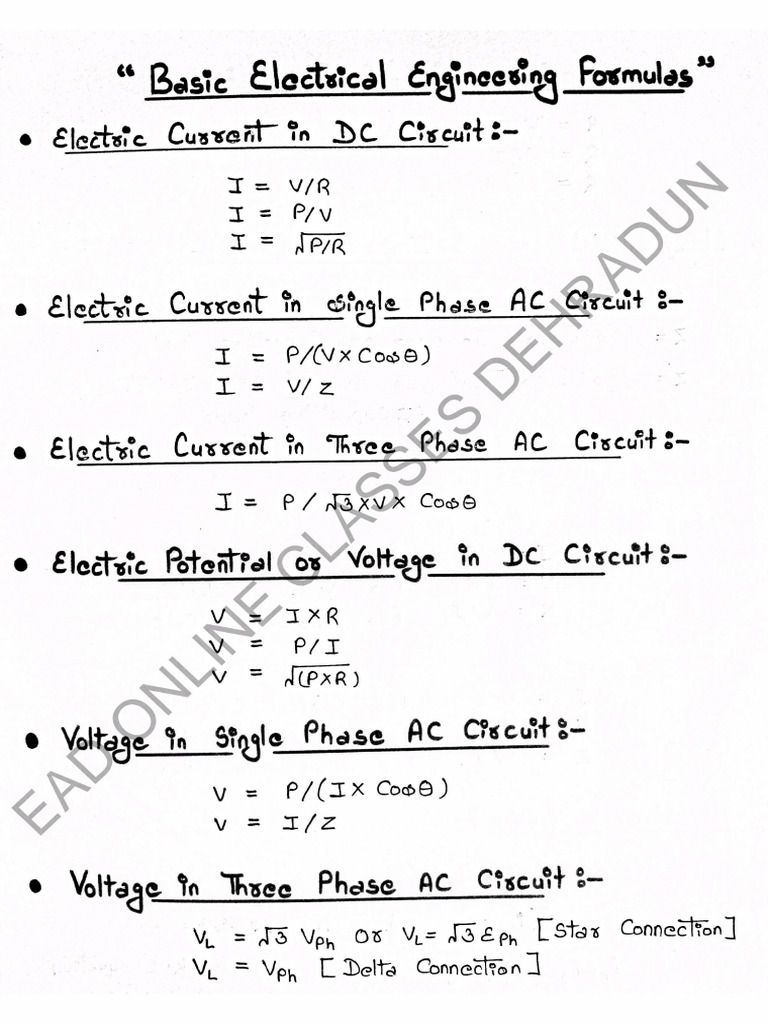 “Basic Electrical Engineering Formulas”
• Electric Current in DC Circuit :-
I = V/R
I = P/V
I = √P/R
• Electric Current in Single Phase AC Circuit :-
I = P/(V×Cosθ)
I = V/Z
• Electric Current in Three Phase AC Circuit :-
I = P/√3×V×Cosθ
• Electric Potential or Voltage in DC Circuit :-
V = I×R
V = P/I
V = √(P×R)
• Voltage in Single Phase AC Circuit :-
V = P/(I×Cosθ)
V = I/Z
• Voltage in Three Phase AC Circuit :-
VL = √3 VPh or VL = √3 EPh [Star Connection]
VL = VPh [Delta Connection]
EAD ONLINE CLASSES DEHRADUN